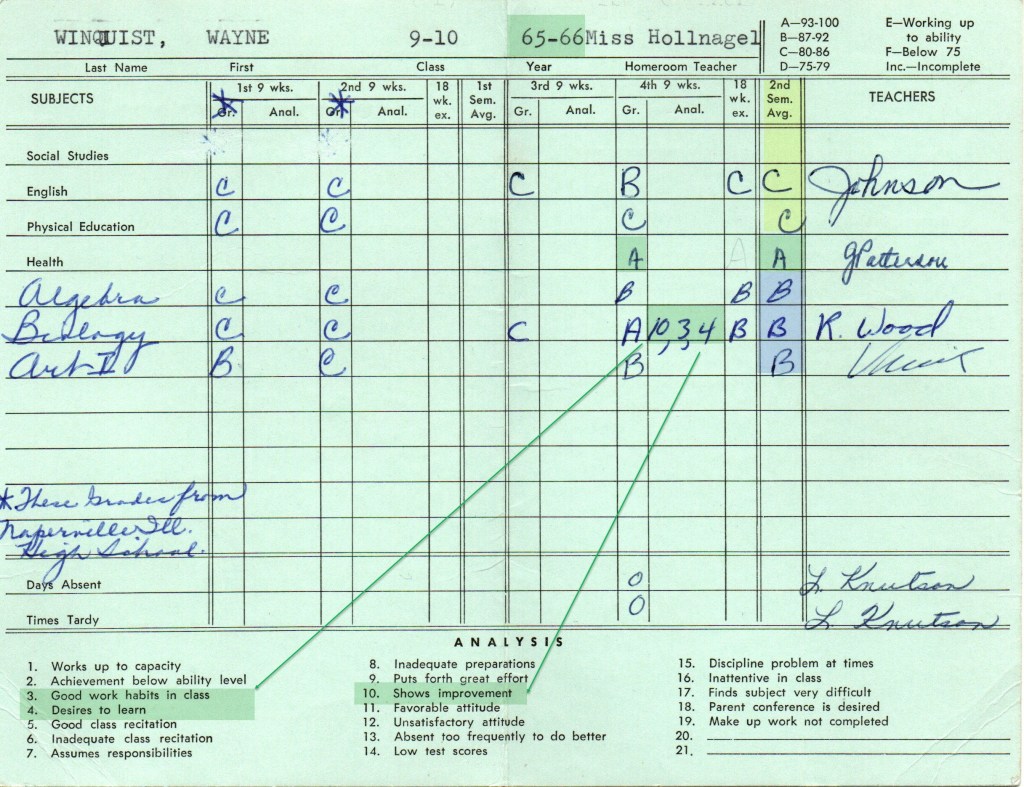 WINQUIST, WAYNE 9-10 65-66 Miss Hollnagel
Last Name First Class Year Homeroom Teacher
A—93-100 E—Working up
B—87-92 to ability
C—80-86 F—Below 75
D—75-79 Inc.—Incomplete
SUBJECTS 1st 9 wks. 2nd 9 wks. 18 wk. ex. 1st Sem. Avg. 3rd 9 wks. 4th 9 wks. 18 wk. ex. 2nd Sem. Avg. TEACHERS
* Gr. Anal. * Gr. Anal. Gr. Anal. Gr. Anal.
Social Studies
English C C C B C C Johnson
Physical Education C C C C
Health A A A G Patterson
Algebra C C B B B
Biology C C C A 10, 3, 4 B B R. Wood
Art I B C B B
* These Grades from
Naperville Ill.
High School.
Days Absent 0 L. Knutson
Times Tardy 0 L. Knutson
ANALYSIS
1. Works up to capacity
2. Achievement below ability level
3. Good work habits in class
4. Desires to learn
5. Good class recitation
6. Inadequate class recitation
7. Assumes responsibilities
8. Inadequate preparations
9. Puts forth great effort
10. Shows improvement
11. Favorable attitude
12. Unsatisfactory attitude
13. Absent too frequently to do better
14. Low test scores
15. Discipline problem at times
16. Inattentive in class
17. Finds subject very difficult
18. Parent conference is desired
19. Make up work not completed
20.
21.